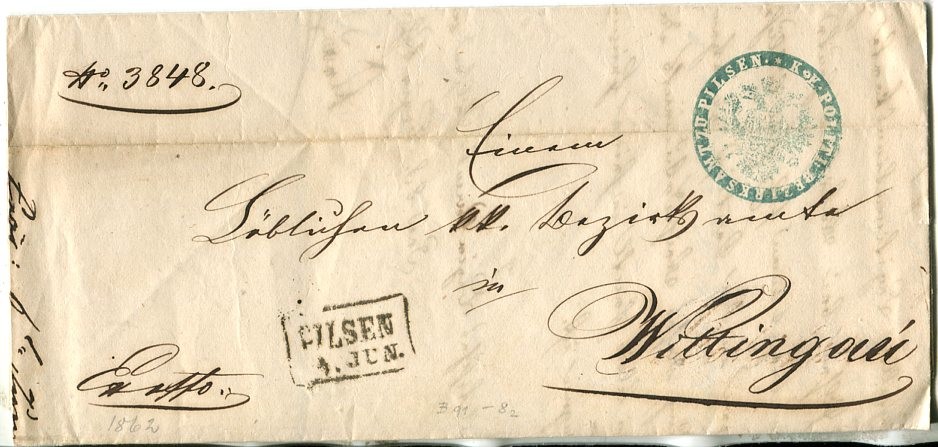 No. 3848.
K. K. POLIT. BEZIRKSAMT ZU PILSEN.
Einem
Löblichen kk. Bezirksamte
in
Wittingau
PILSEN
4. JUN.
Ex offo.
1862